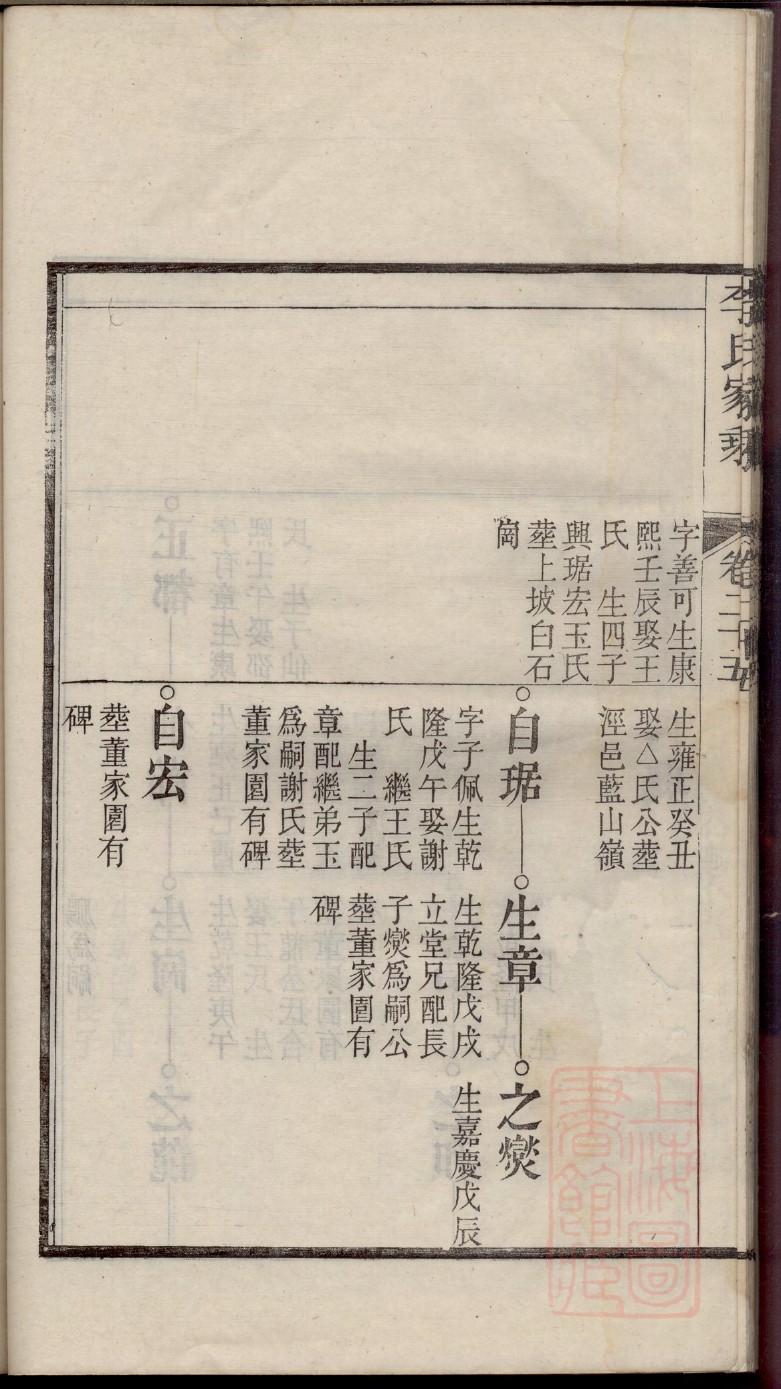 李氏家乘
卷二十五
字善可生康
熙壬辰娶王
氏　生四子
興琚宏玉氏
塟上坡白石
崗
生雍正癸丑
娶△氏公塟
涇邑藍山嶺
自琚
字子佩生乾
隆戊午娶謝
氏　繼王氏
生二子配
章配繼弟玉
爲嗣謝氏塟
董家園有碑
自宏
塟董家園有
碑
生章
生乾隆戊戌
立堂兄配長
子爕爲嗣公
塟董家園有
碑
之爕
生嘉慶戊辰
上海圖書館藏